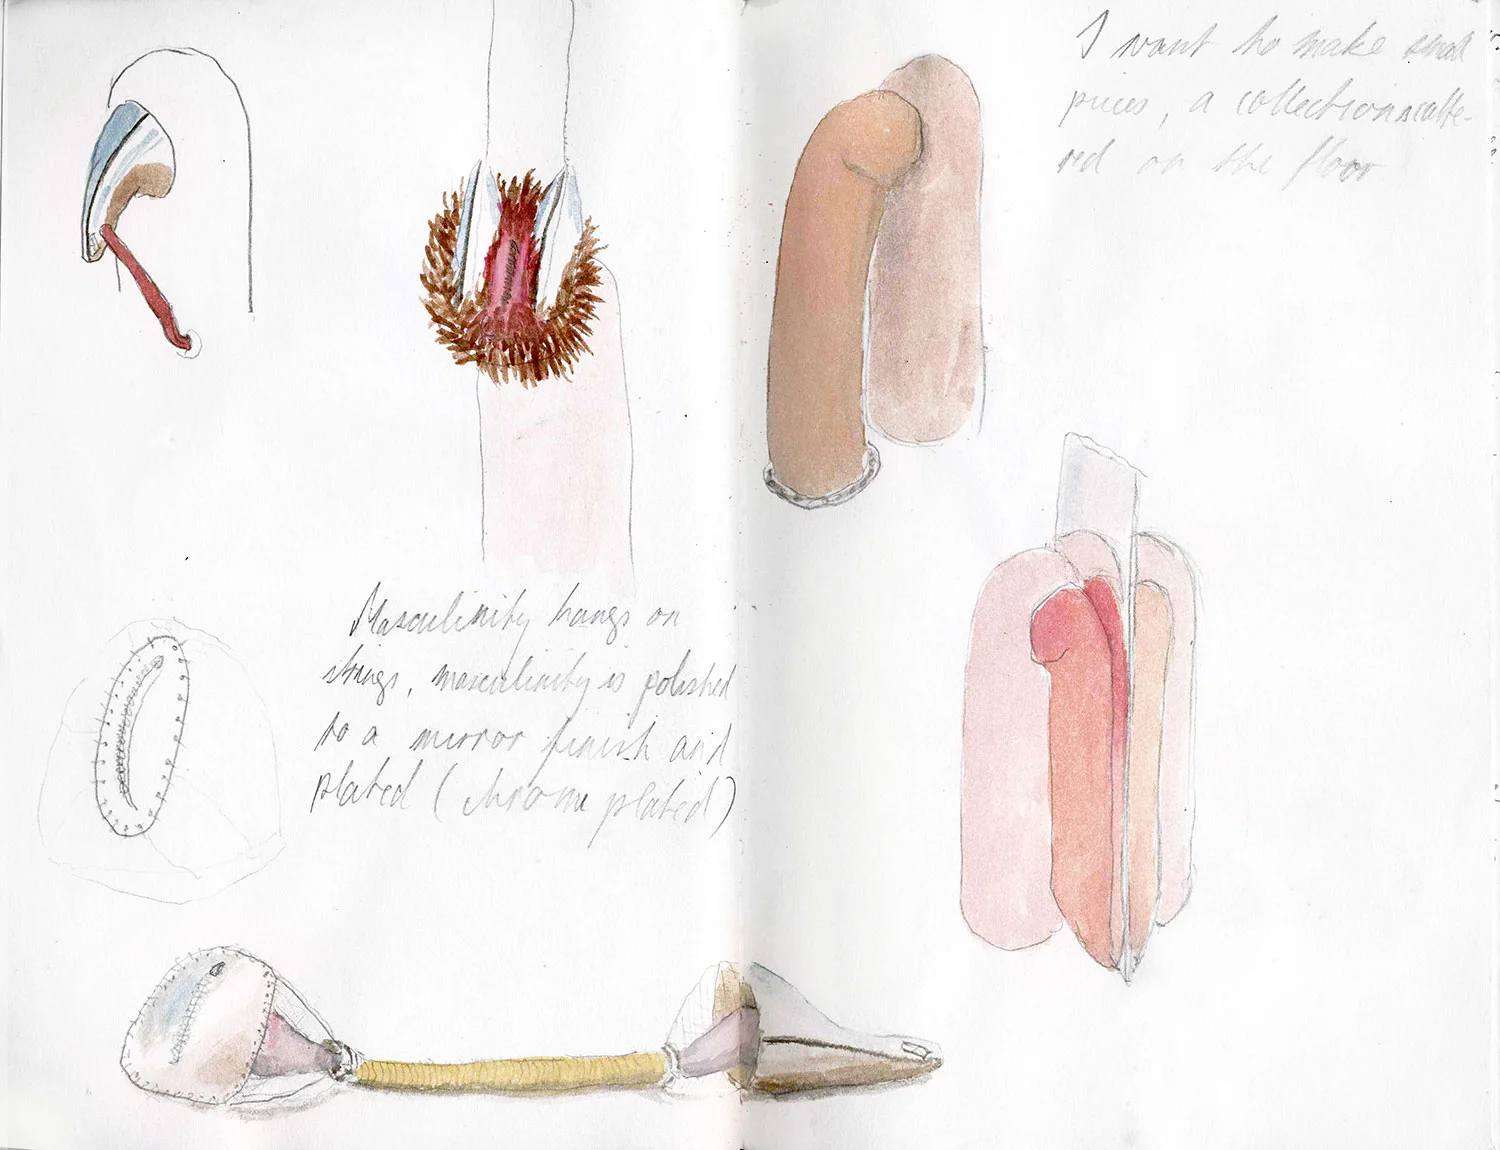 I want to make small
pieces, a collection scatte-
red on the floor
Masculinity hangs on
strings, masculinity is polished
to a mirror finish and
plated (chrome plated)